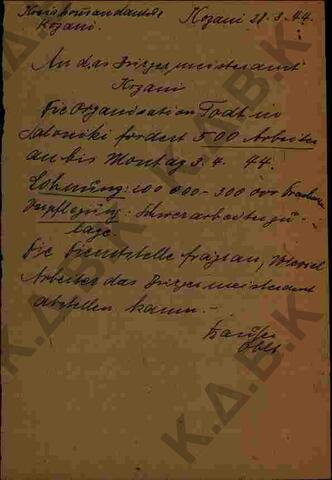 Kreiskommandantur Kozani 28.3.44.
Kozani.
An das Bürgermeisteramt
Kozani
Die Organisation Todt in
Saloniki fordert 500 Arbeiter
an bis Montag 3.4.44.
Löhnung: 200 000 - 300 000 Drachmen
Verpflegung: Schwerarbeiterzu-
lage.
Die Dienststelle frägt an, wieviel
Arbeiter das Bürgermeisteramt
abstellen kann.-
Oblt
Κ.Δ.Β.Κ
Κ.Δ.Β.Κ
Κ.Δ.Β.Κ